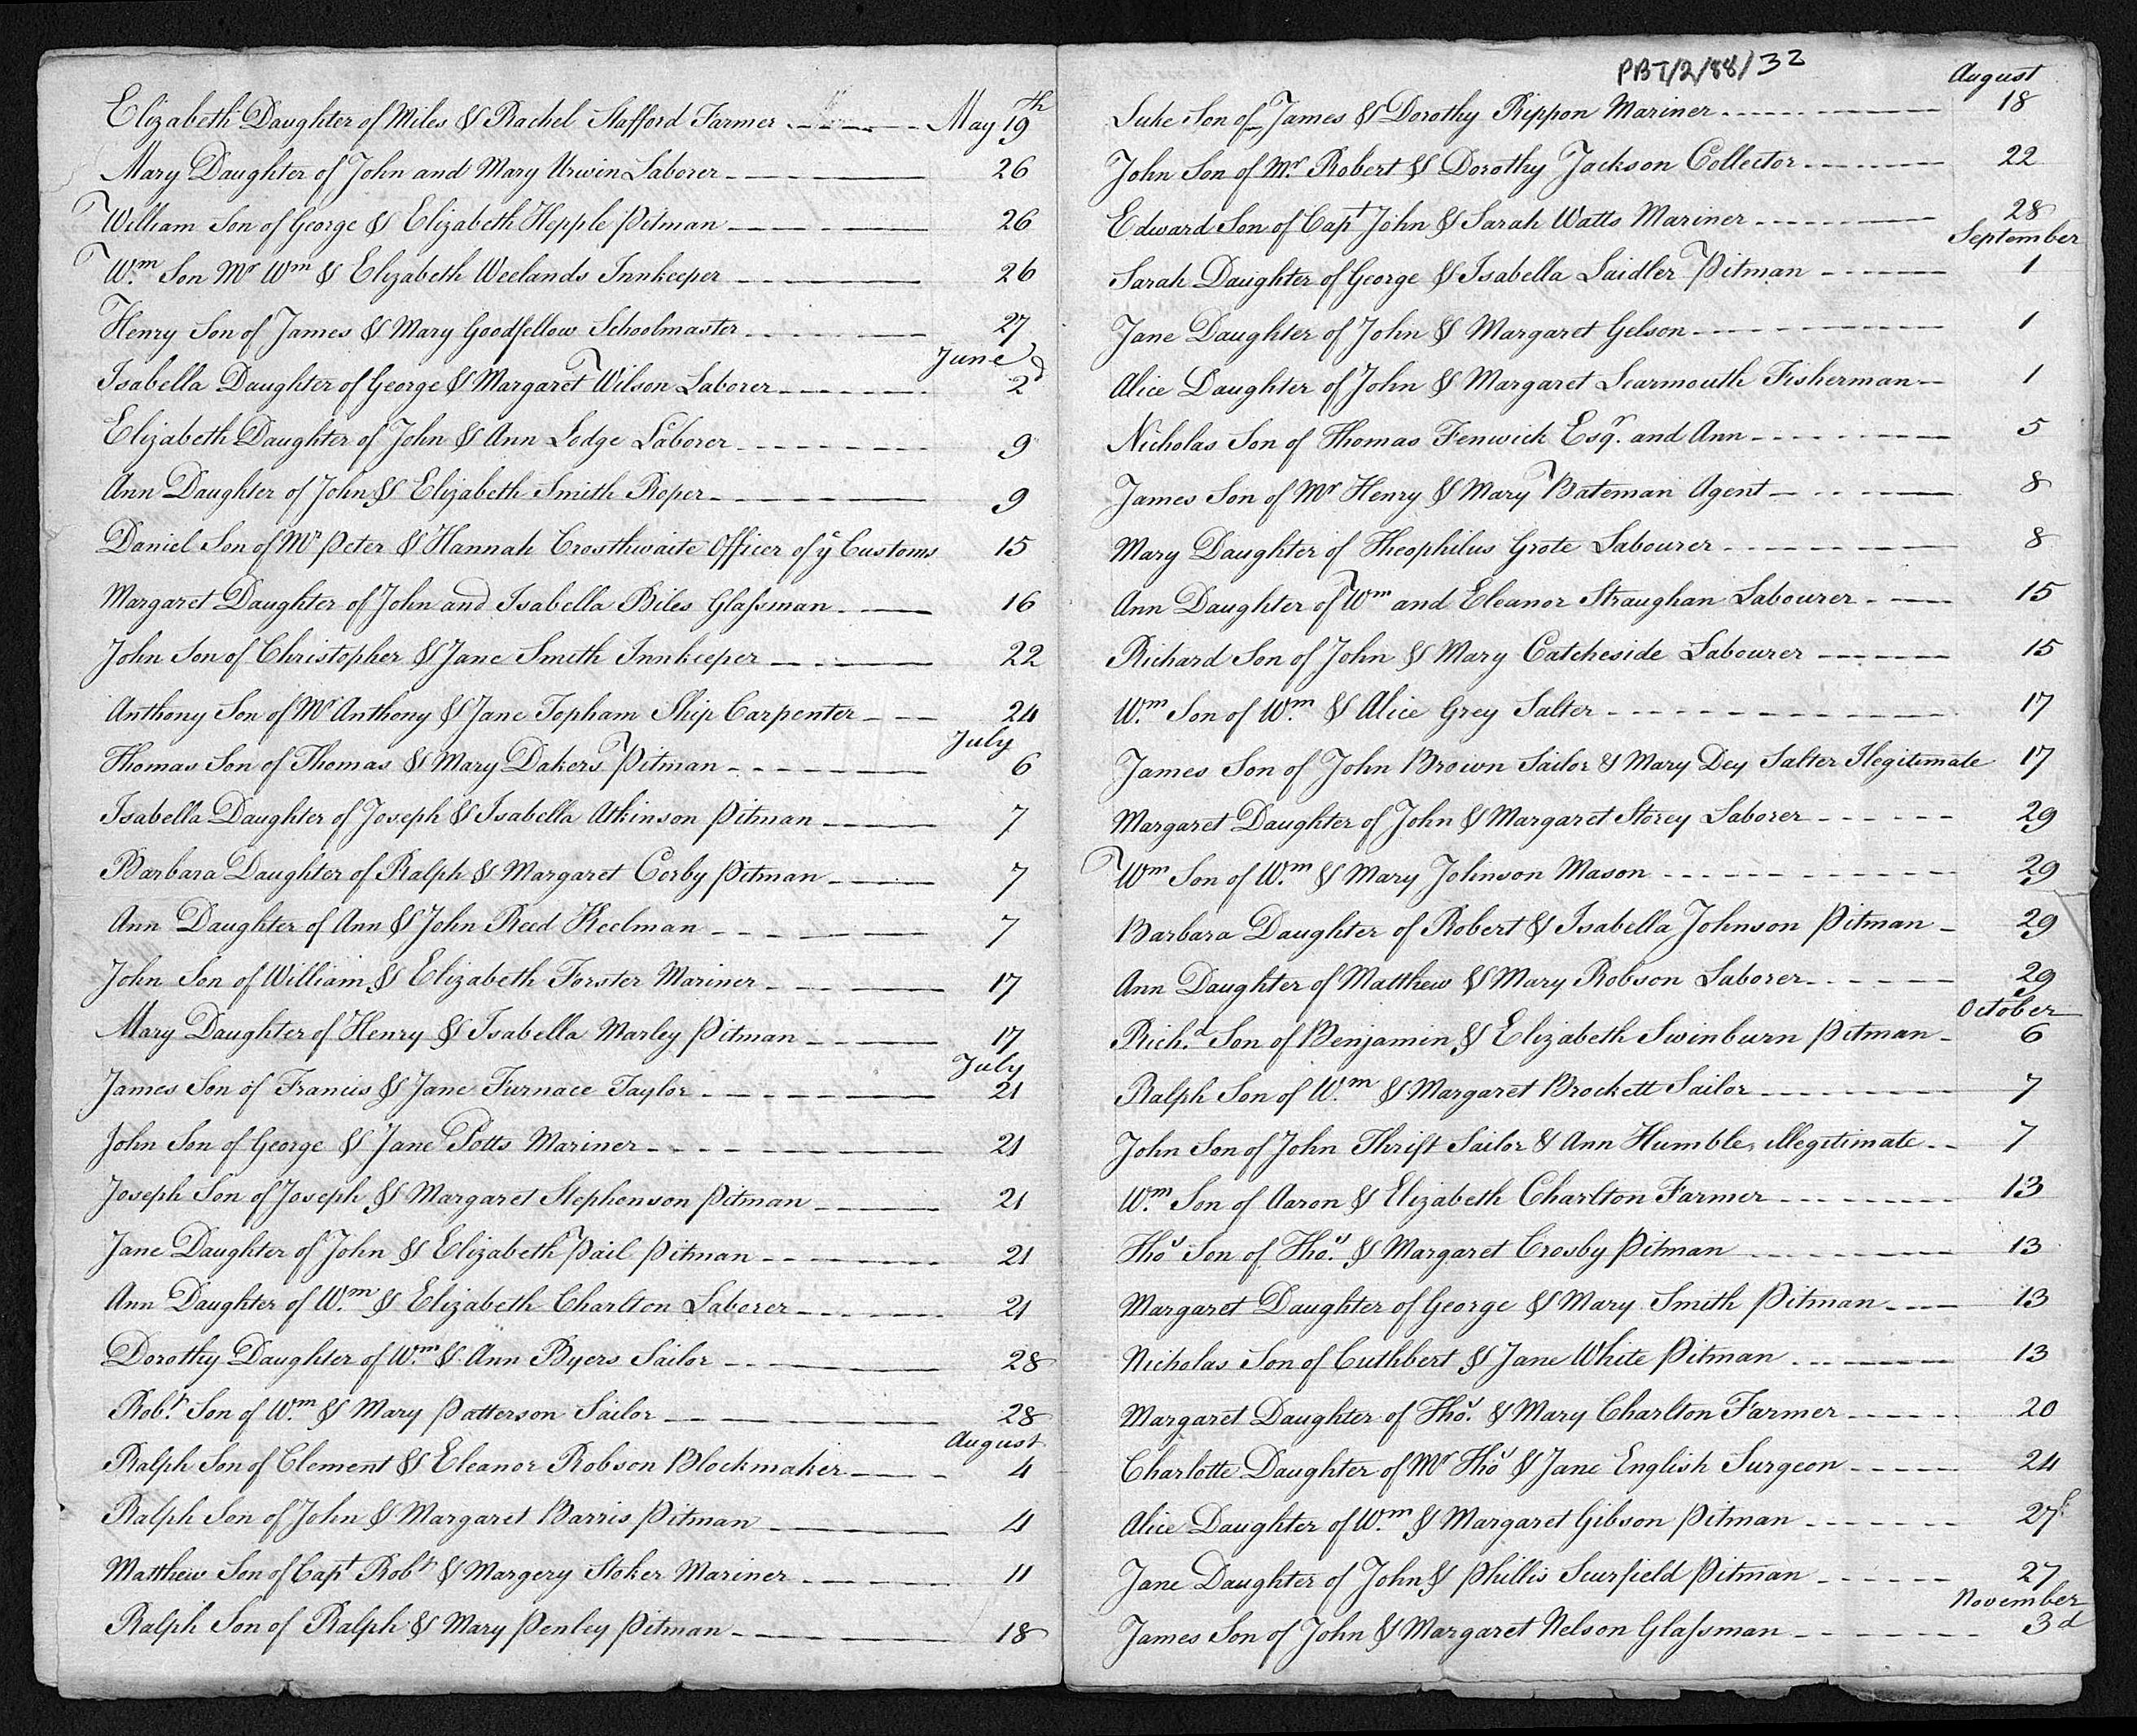 Elizabeth Daughter of Miles & Rachel Stafford Farmer May 19th
Mary Daughter of John and Mary Urwin Laborer 26
William Son of George & Elizabeth Hepple Pitman 26
Wm Son Mr Wm & Elizabeth Weelands Innkeeper 26
Henry Son of James & Mary Goodfellow Schoolmaster 27
June
Isabella Daughter of George & Margaret Wilson Laborer 2d
Elizabeth Daughter of John & Ann Lodge Laborer 9
Ann Daughter of John & Elizabeth Smith Roper 9
Daniel Son of Mr Peter & Hannah Crosthwaite Officer of ye Customs 15
Margaret Daughter of John and Isabella Biles Glassman 16
John Son of Christopher & Jane Smith Innkeeper 22
Anthony Son of Mr Anthony & Jane Topham Ship Carpenter 24
July
Thomas Son of Thomas & Mary Dakers Pitman 6
Isabella Daughter of Joseph & Isabella Atkinson Pitman 7
Barbara Daughter of Ralph & Margaret Corby Pitman 7
Ann Daughter of Ann & John Reed Keelman 7
John Son of William & Elizabeth Forster Mariner 17
Mary Daughter of Henry & Isabella Marley Pitman 17
July
James Son of Francis & Jane Furnace Taylor 21
John Son of George & Jane Potts Mariner 21
Joseph Son of Joseph & Margaret Stephenson Pitman 21
Jane Daughter of John & Elizabeth Pail Pitman 21
Ann Daughter of Wm & Elizabeth Charlton Laborer 21
Dorothy Daughter of Wm & Ann Byers Sailor 28
Robt Son of Wm & Mary Patterson Sailor 28
August
Ralph Son of Clement & Eleanor Robson Blockmaker 4
Ralph Son of John & Margaret Barris Pitman 4
Matthew Son of Capt Robt & Margery Stoker Mariner 11
Ralph Son of Ralph & Mary Penley Pitman 18
PBT/2/88/32
August
Luke Son of James & Dorothy Rippon Mariner 18
John Son of Mr Robert & Dorothy Jackson Collector 22
Edward Son of Capt John & Sarah Watts Mariner 28
September
Sarah Daughter of George & Isabella Laidler Pitman 1
Jane Daughter of John & Margaret Gelson 1
Alice Daughter of John & Margaret Learmouth Fisherman 1
Nicholas Son of Thomas Fenwick Esqr. and Ann 5
James Son of Mr Henry & Mary Bateman Agent 8
Mary Daughter of Theophilus Grote Labourer 8
Ann Daughter of Wm and Eleanor Straughan Labourer 15
Richard Son of John & Mary Catcheside Labourer 15
Wm Son of Wm & Alice Grey Salter 17
James Son of John Brown Sailor & Mary Dey Salter Ilegitimate 17
Margaret Daughter of John & Margaret Storey Laborer 29
Wm Son of Wm & Mary Johnson Mason 29
Barbara Daughter of Robert & Isabella Johnson Pitman 29
Ann Daughter of Matthew & Mary Robson Laborer 29
October
Richd Son of Benjamin & Elizabeth Swinburn Pitman 6
Ralph Son of Wm & Margaret Brockett Sailor 7
John Son of John Thrift Sailor & Ann Humble, illegitimate 7
Wm Son of Aaron & Elizabeth Charlton Farmer 13
Thos Son of Thos & Margaret Crosby Pitman 13
Margaret Daughter of George & Mary Smith Pitman 13
Nicholas Son of Cuthbert & Jane White Pitman 13
Margaret Daughter of Thos & Mary Charlton Farmer 20
Charlotte Daughter of Mr Thos & Jane English Surgeon 24
Alice Daughter of Wm & Margaret Gibson Pitman 27
Jane Daughter of John & Phillis Surfield Pitman 27
November
James Son of John & Margaret Nelson Glassman 3d